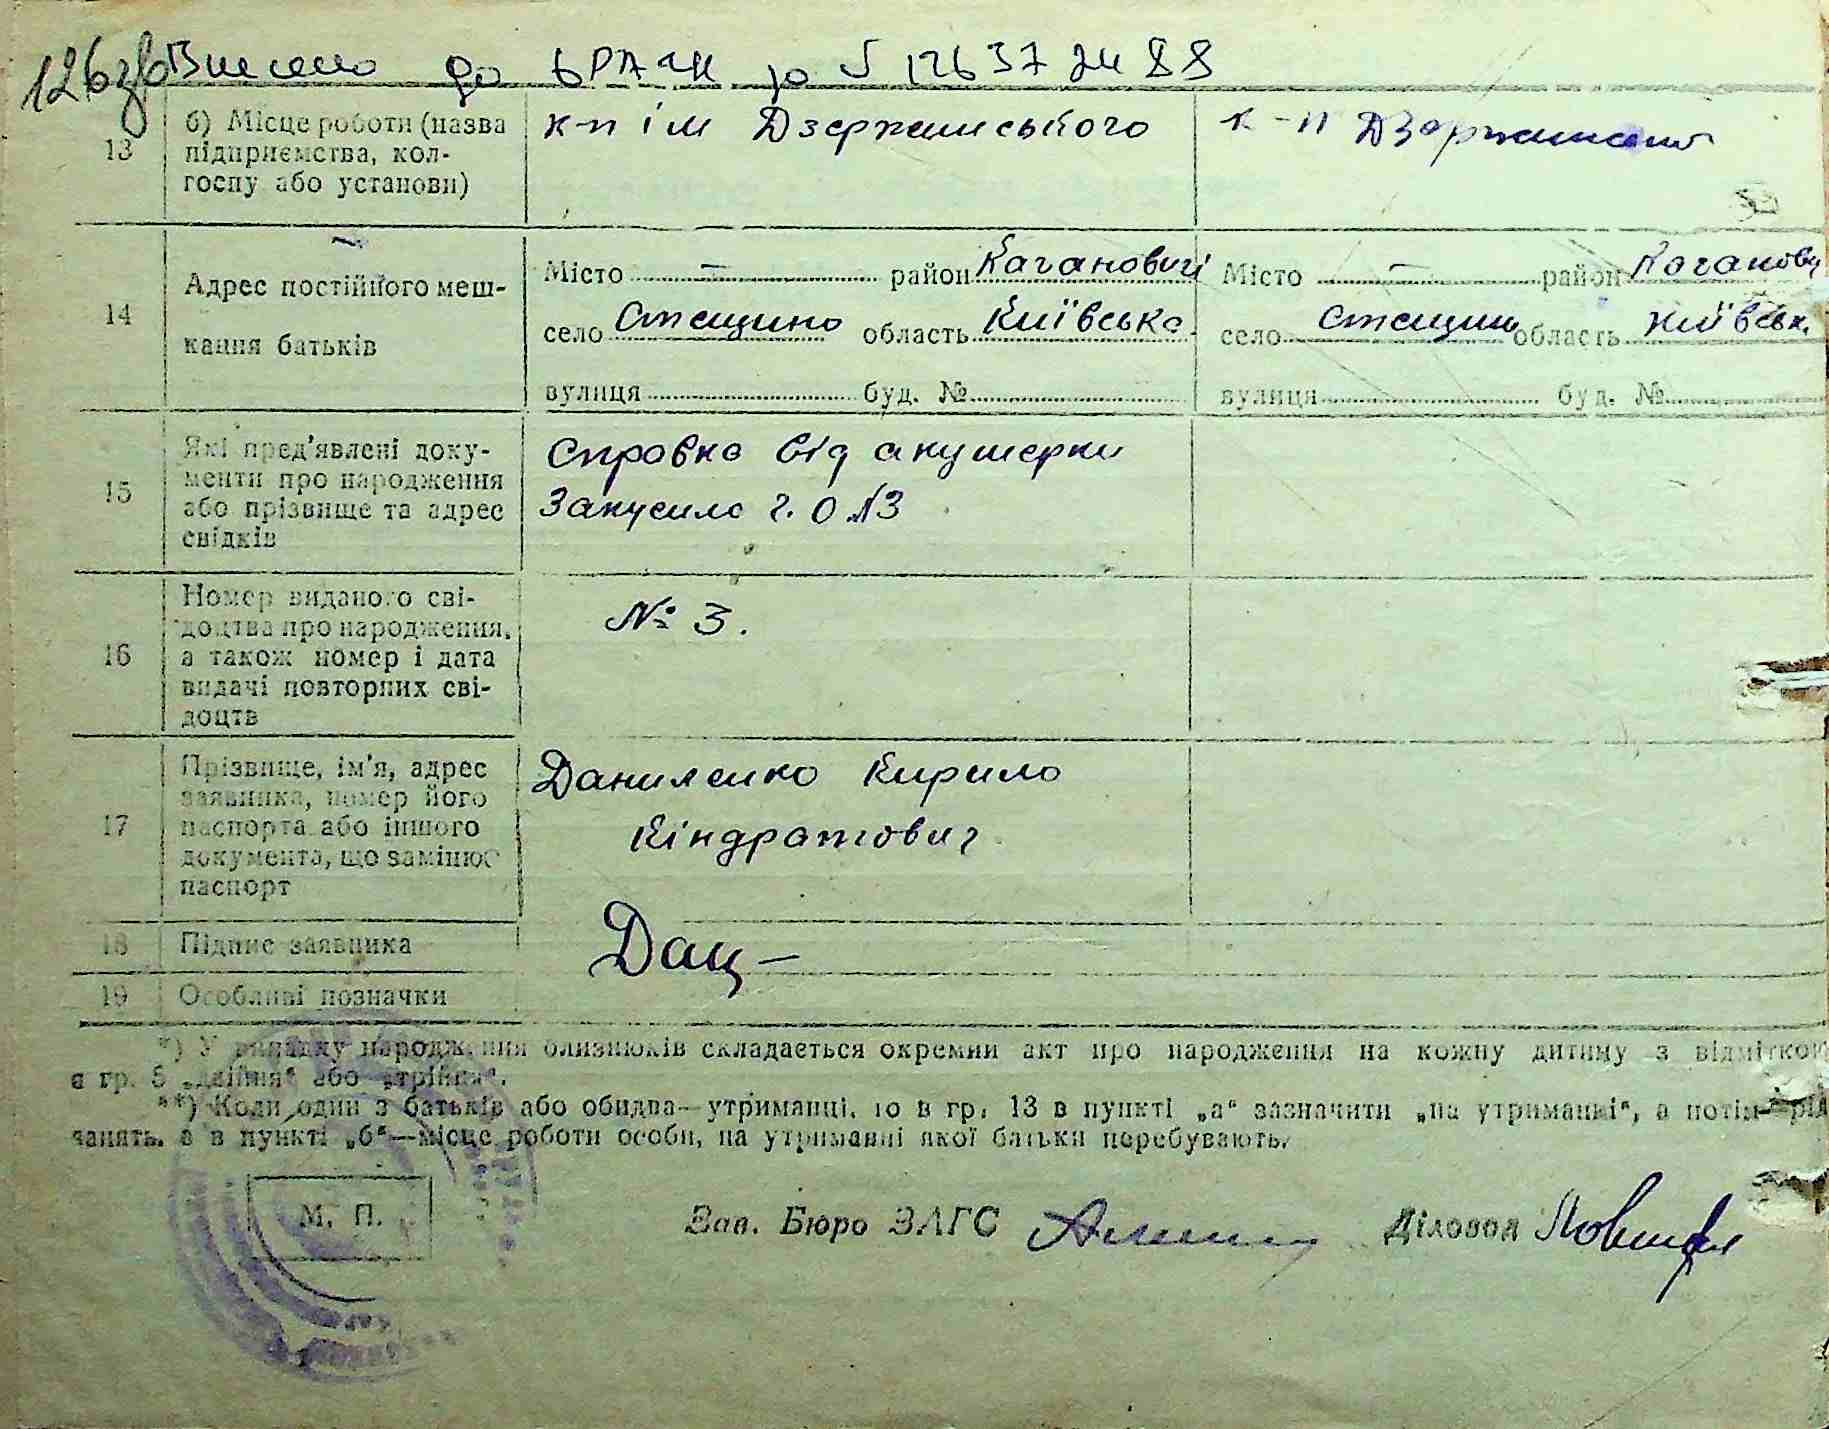 126зв Внесено до ДРАЦС за № 12637 24 88
13 б) Місце роботи (назва підприємства, колгоспу або установи) к-п ім Дзержинського к-п Дзержинсько
14 Адрес постійного мешкання батьків
Місто – район Кагановичі Місто – район Каганови
село Стещино область Київська село Стещин область Київськ.
вулиця буд. № вулиця буд. №
15 Які пред'явлені документи про народження або прізвище та адрес свідків
Справка від акушерки
Закусило г. О №3
16 Номер виданого свідоцтва про народження, а також номер і дата видачі повторних свідоцтв
№ 3.
17 Прізвище, ім'я, адрес заявника, номер його паспорта або іншого документа, що замінює паспорт
Даниленко Кирило
Кіндратович
18 Підпис заявника Дац –
19 Особливі позначки
*) У випадку народження близнюків складається окремий акт про народження на кожну дитину з відміткою
в гр. 5 „двійня“ або „трійня“.
**) Коли один з батьків або обидва—утриманці, то в гр. 13 в пункті „а“ зазначити „на утриманні“, а потім рід
занять, а в пункті „б“—місце роботи особи, на утриманні якої батьки перебувають.
М. П. Зав. Бюро ЗАГС Діловод